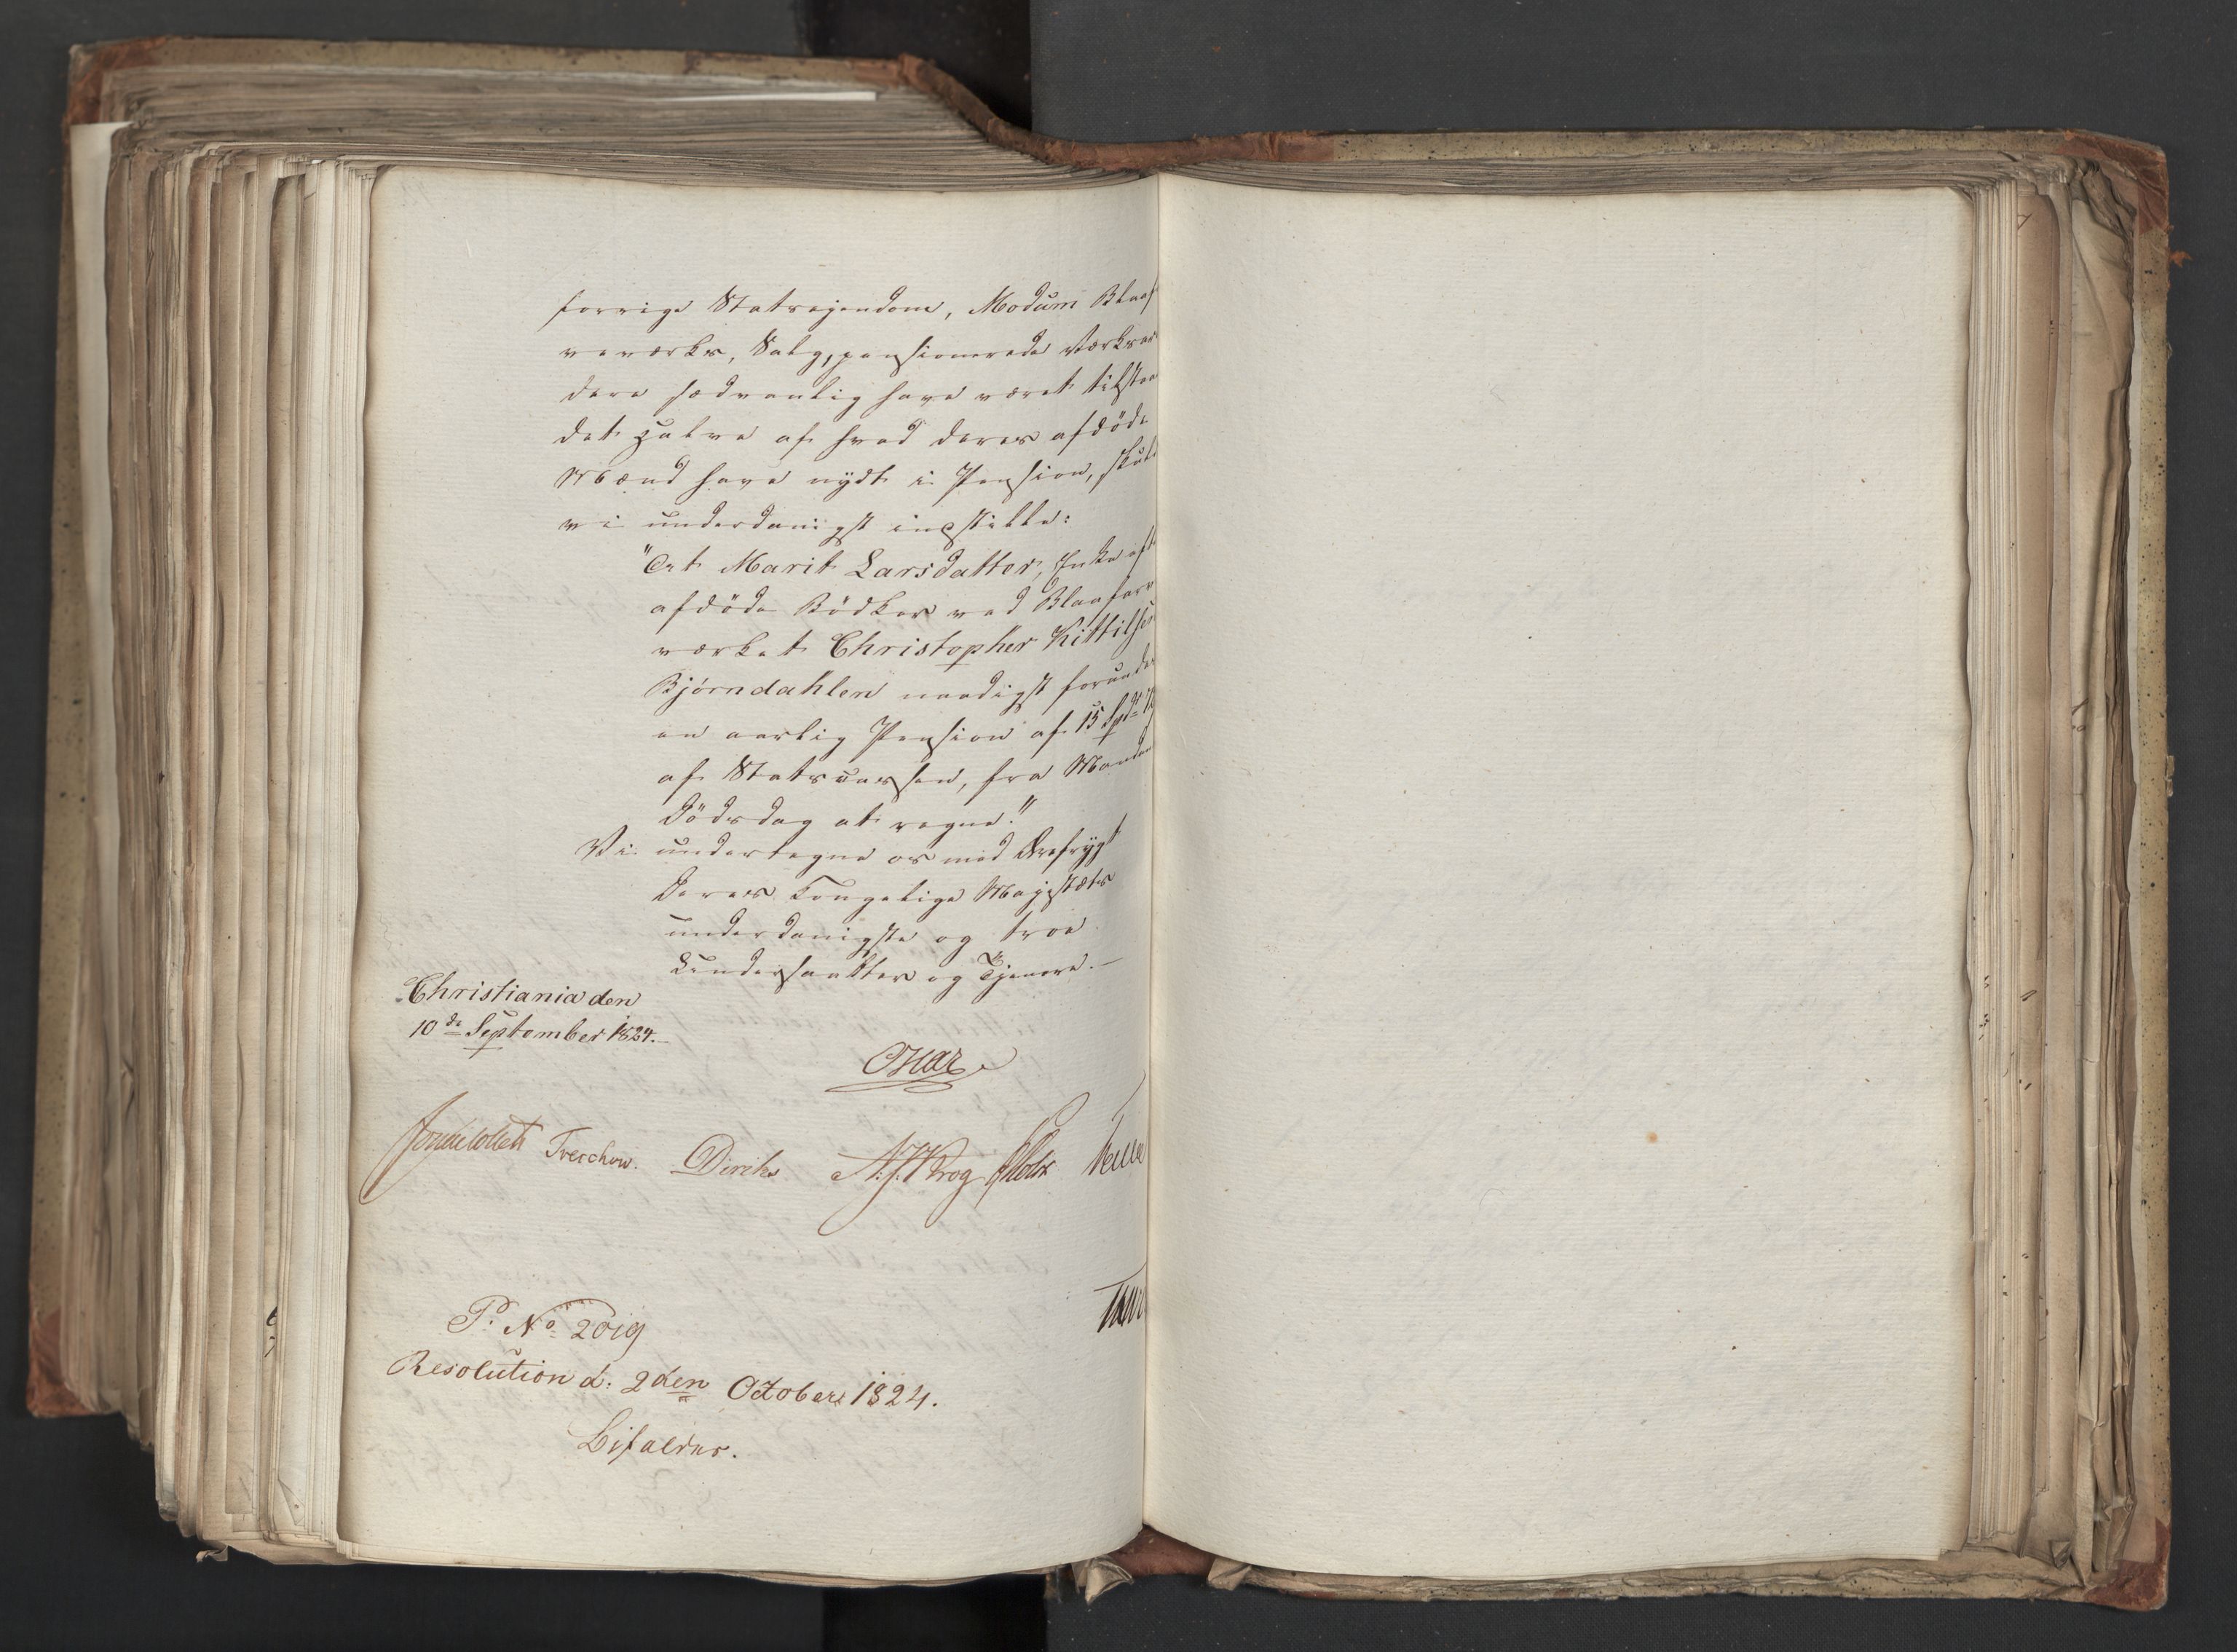 forrige Statsejendom, Modum Blaaf
veværks, Salg, pensionerede Værksar
dere sædvanlig have været tilstaa
det halve af hvad deres afdöde
Mænd have nydt i Pension, skule
vi underdanigst indstille:
"At Marit Larsdatter, Enke eft
afdöde Bödker ved Blaafarve
værket Christopher Kittilsen
Bjørndahlen naadigst forundes
en aarlig Pension af 15 Spd
af Statscassen, fra Mandens
Dödsdag at regne."
Vi undertegne os med Ærefrygt
Deres Kongelige Majestæts
underdanigste og troe
Undersaatter og Tjenere.—
Christiania den
10de September 1824.
Collett Treschow. Diriks A. J. Krog Holst
P. No 2019
Resolution d: 2den October 1824.
Bifaldes.